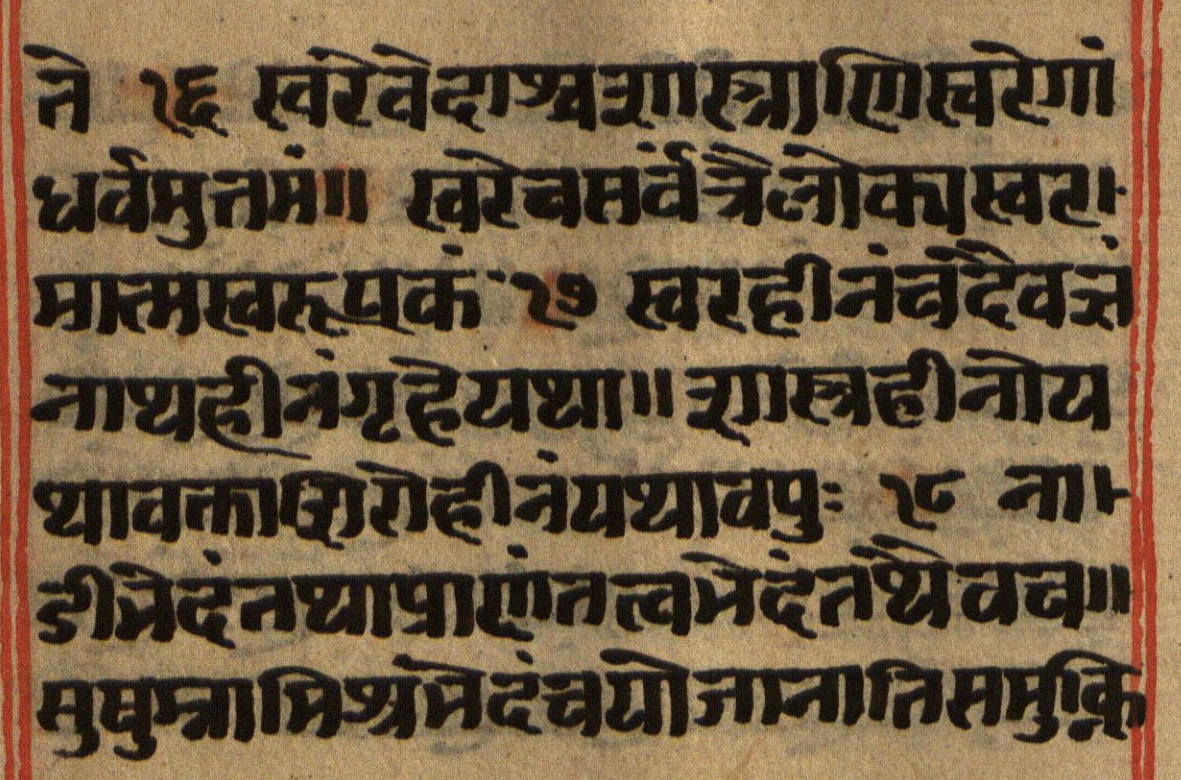 ते १६ स्वरेवेदाश्चशास्त्राणिस्वरेगां
धर्वमुत्तमं॥ स्वरेचसर्वत्रैलोक्यस्वर।
मात्मस्वरूपकं १७ स्वरहीनंचदैवज्ञं
नाथहीनंगृहेयथा॥ शास्त्रहीनोय
थावक्ताशिरोहीनंयथावपुः १८ ना।
डीभेदंतथाप्राणंतत्वभेदंतथैवच॥
सुषुम्नामिश्रभेदंचयोजानातिसमुक्ति